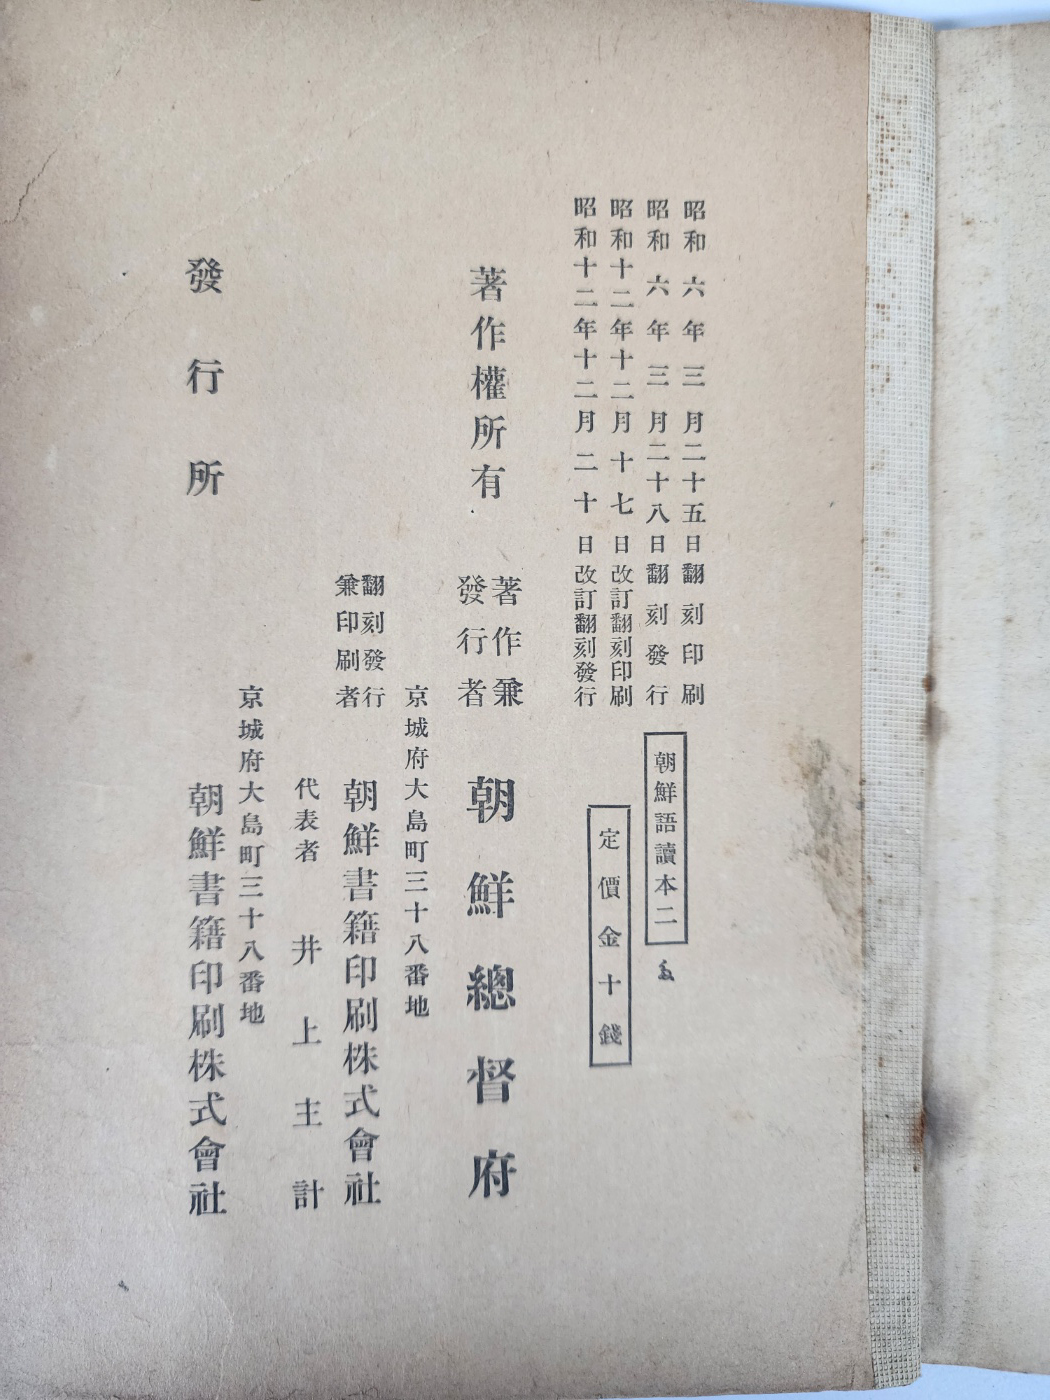 昭和六年三月二十五日翻刻印刷
昭和六年三月二十八日翻刻發行
昭和十二年十二月十七日改訂翻刻印刷
昭和十二年十二月二十日改訂翻刻發行
朝鮮語讀本二
定價金十錢
著作權所有
著作兼
發行者
朝鮮總督府
京城府大島町三十八番地
翻刻發行
兼印刷者
朝鮮書籍印刷株式會社
代表者 井上主計
京城府大島町三十八番地
發行所
朝鮮書籍印刷株式會社